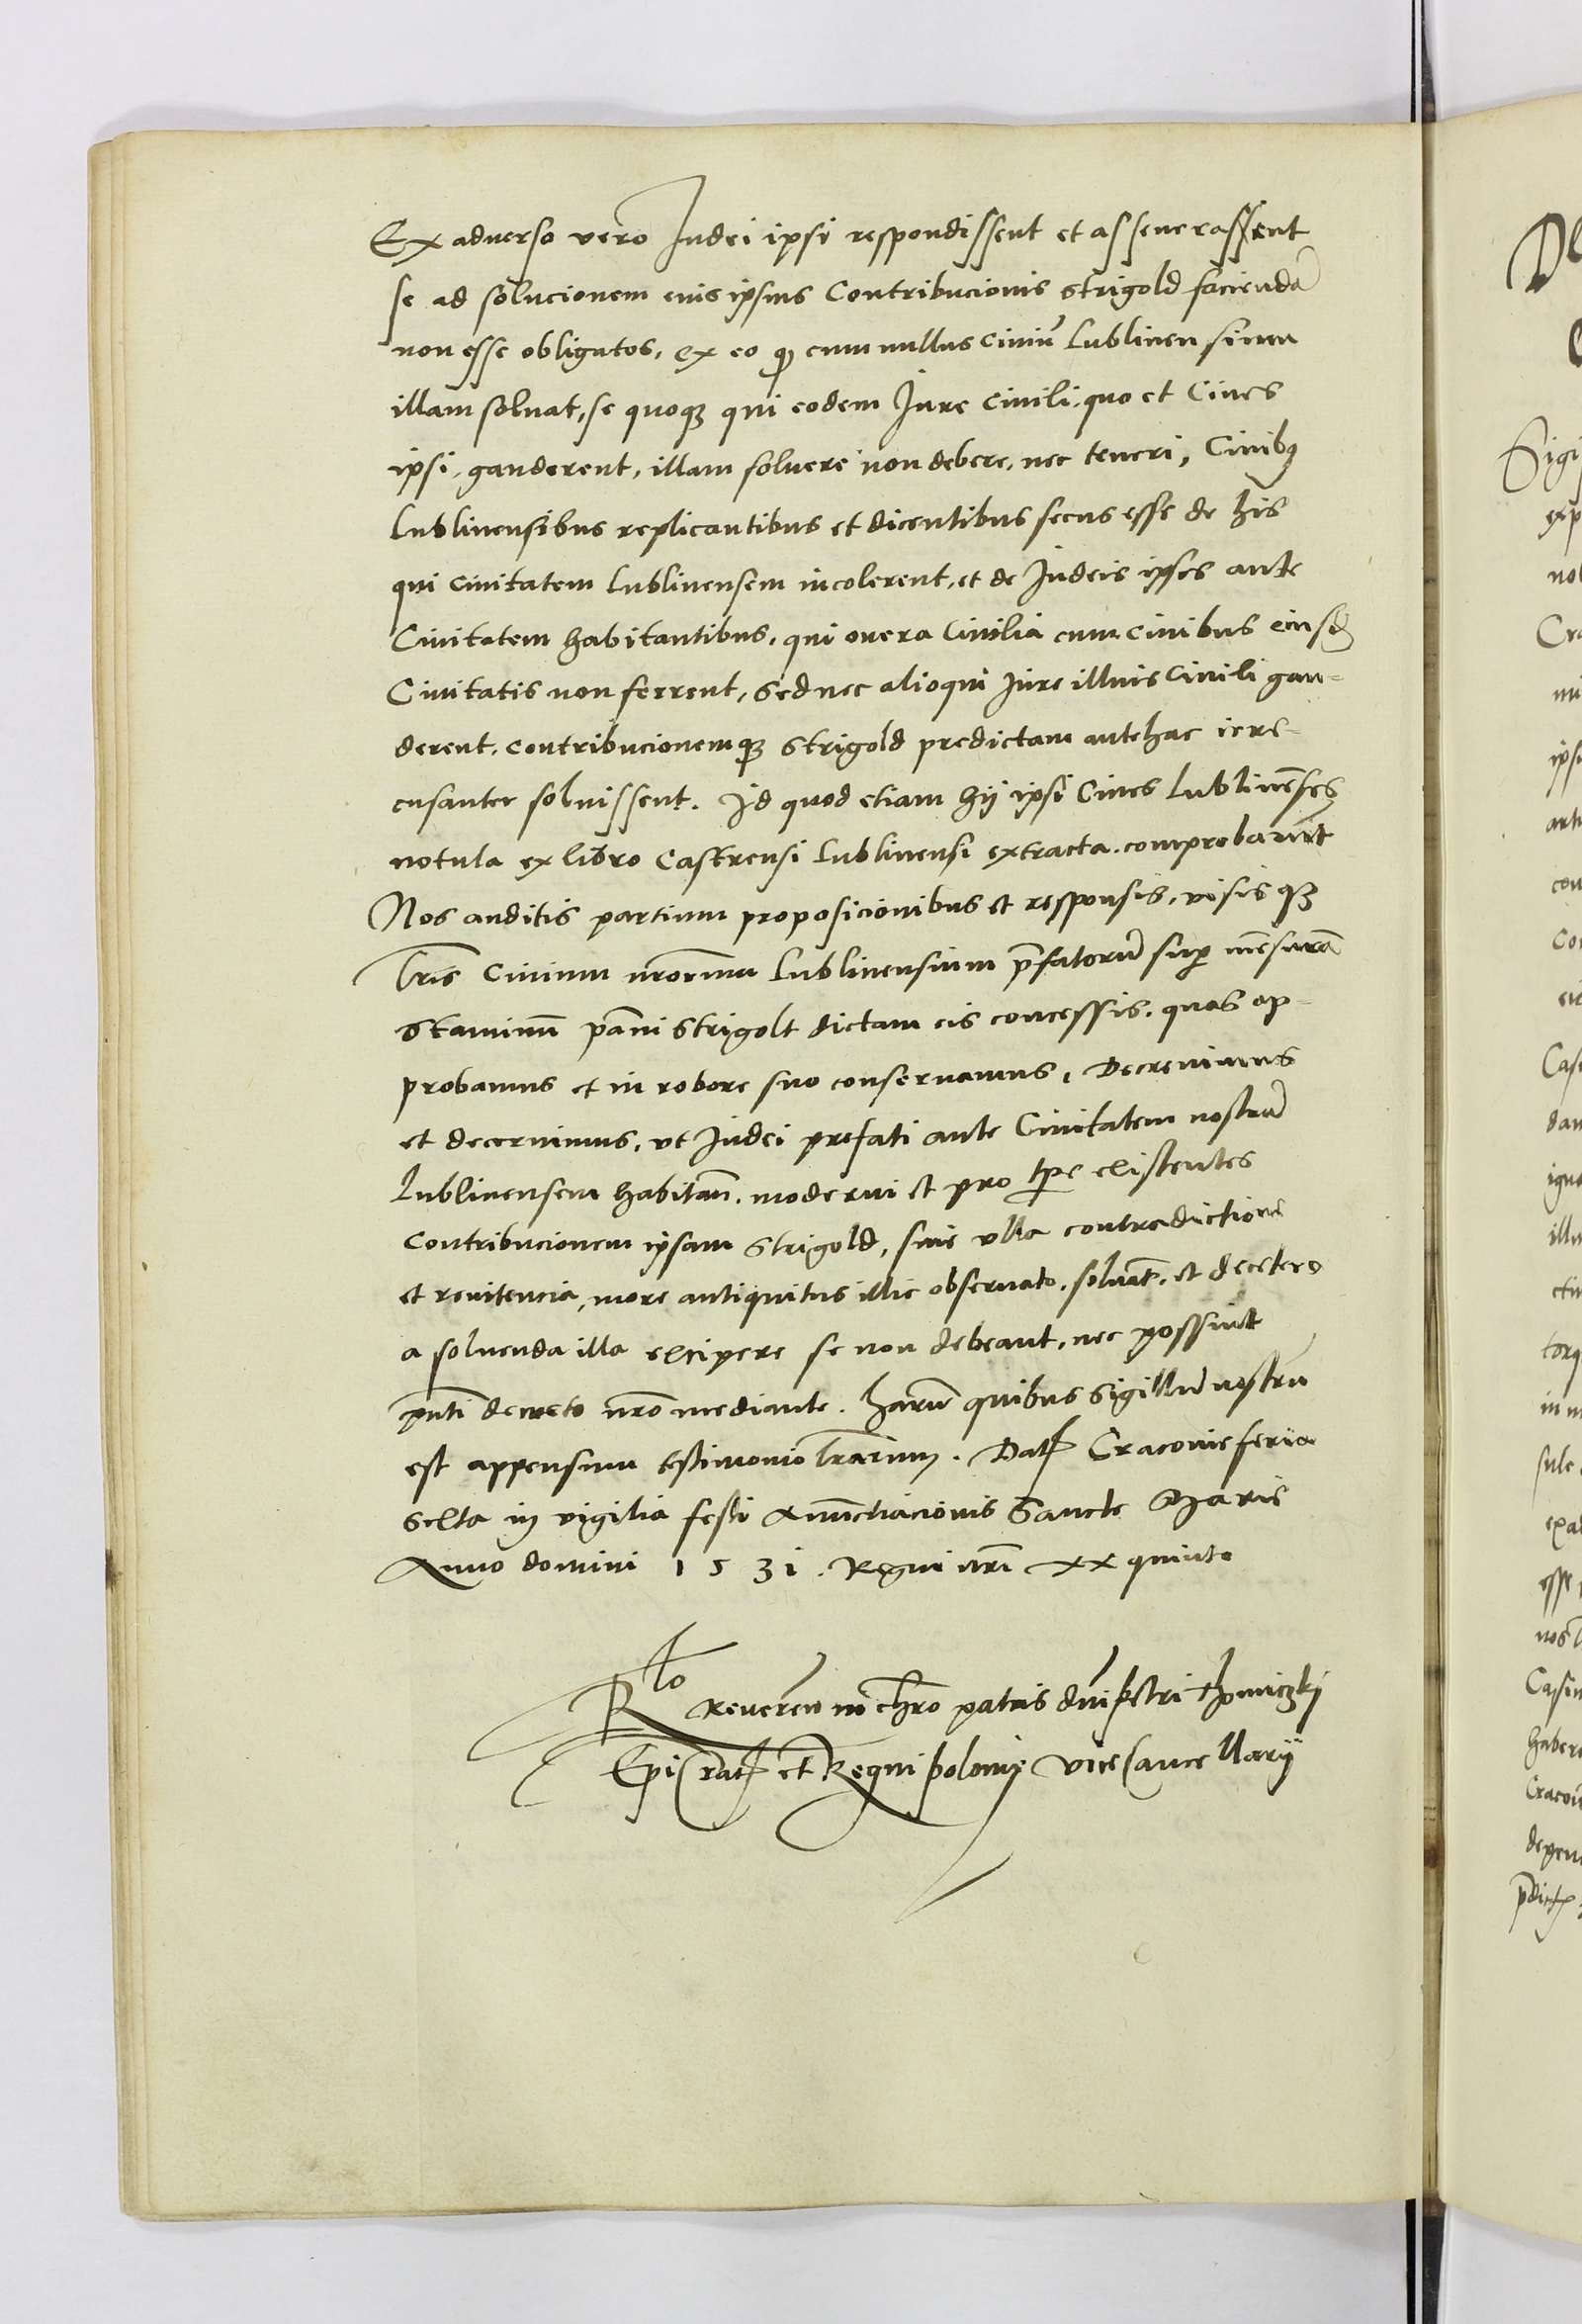 Ex aduerso vero Iudei ipsi respondissent et asseuerassent
se ad solucionem euis ipsius Contribucionis strigold facienda̅
non esse obligatos, ex eo ꝙ cum nullus Ciuiu̅ Lublinensium
illam soluat, se quoqꝫ qui eodem Iure Ciuili, quo et Ciues
ipsi, gauderent, illam soluere non debere, nec teneri, Ciuibꝫ
Lublinensibus replicantibus et dicentibus secus esse de his
qui Ciuitatem Lublinensem incolerent, et de Iudeis ipsis ante
Ciuitatem habitantibus, qui onera Ciuilia cum Ciuibus eiusd̅
Ciuitatis non ferrent, sed nec alioqui Iure illius Ciuili gau-
derent, contribucionemqꝫ strigold predictam antehac icre-
cusanter soluissent. Id quod etiam hij ipsi Ciues Lubline̅ses
notula ex libro Castrensi Lublinensi extracta comprobarunt
Nos auditis partium proposicionibus et responsis, visisqꝫ
lr̅is Ciuium nr̅orum Lublinensium p̅fatoru̅ sup̲ me̅sura̅
staminu̅ pa̅ni strigolt dictam eis concessis, quas ap-
probamus et in robore suo conseruamus, Decreuimus
et decernimus, vt Iudei prefati ante Ciuitatem nostra̅
Lublinensem habitan̅. moderni et pro tp̅e existentes
Contribucionem ipsam strigold, sine vlla contradictione
et renitencia, more antiquitus illic obseruato, soluant, et decetero
a soluenda illa excipere se non debeant, nec possint
pn̅ti decreto nr̅o mediante. Haru̅ quibus Sigillu̅ nostru̅
est appensum testimonio lr̅arum. Dat̅ Cracovie feria
sexta in vigilia festi Annu̅ctiacionis Sancte Marie
Anno domini 1531. Regni nr̅i xx quinto
Rlo Reveren̅ in chr̅o patris dn̅i petri thomiczkij
Ep̅i Crac̅ et Regni polonie Vicecancellarij